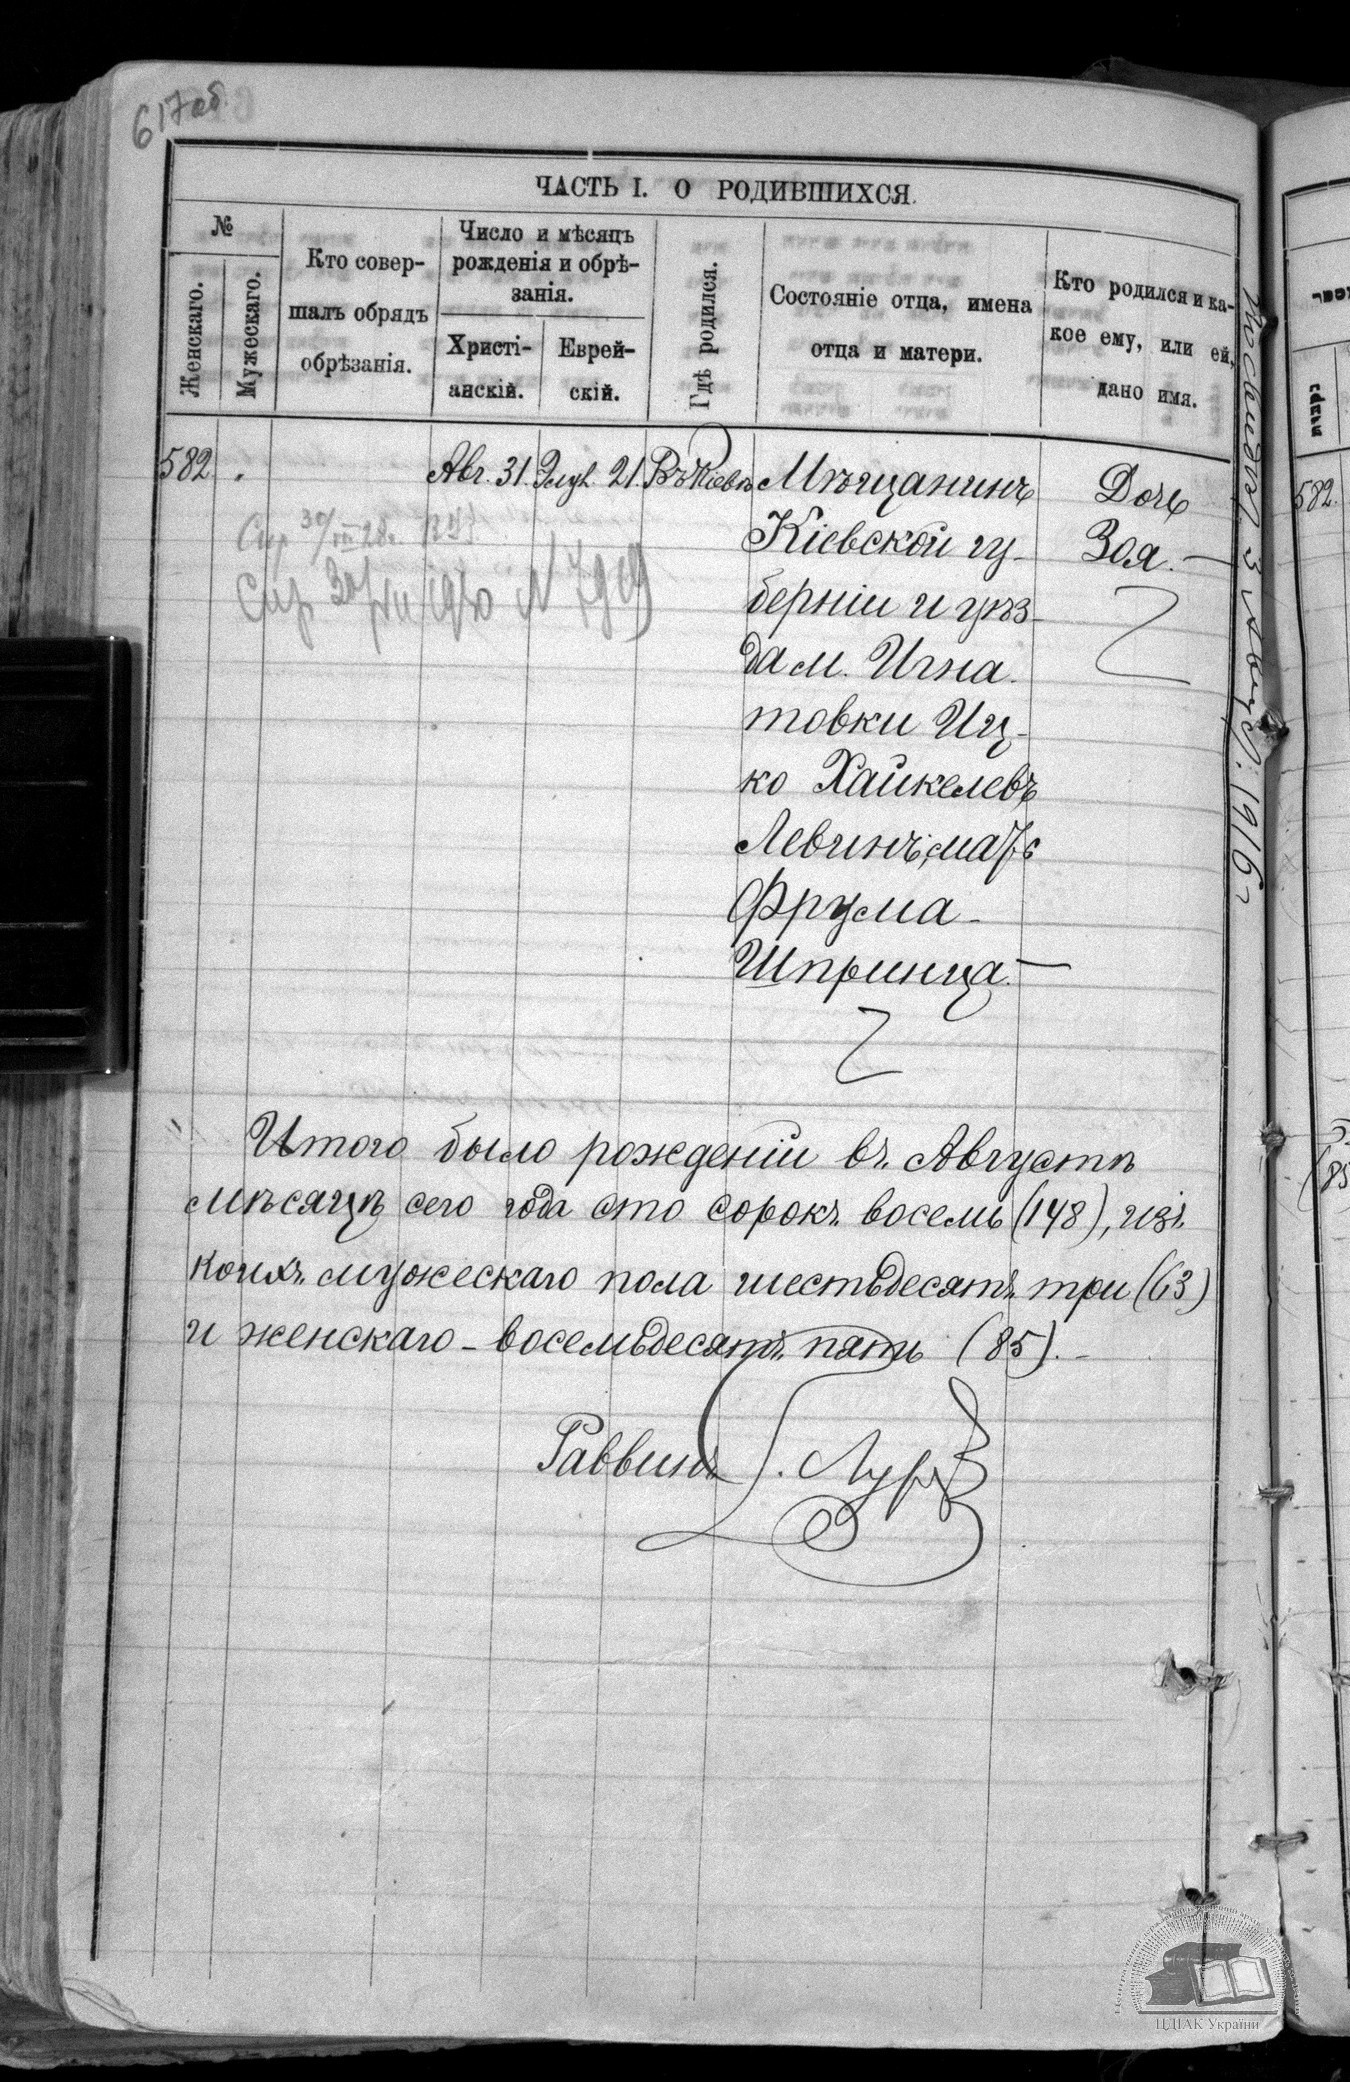 617 об.
ЧАСТЬ I. О РОДИВШИХСЯ.
№
Женскаго.
Мужескаго.
Кто совер-
шалъ обрядъ
обрѣзанія.
Число и мѣсяцъ
рожденія и обрѣ-
занія.
Христі-
анскій.
Еврей-
скій.
Гдѣ родился.
Состояніе отца, имена
отца и матери.
Кто родился и ка-
кое ему, или ей,
дано имя.
582. Авг. 31. Элул 21. Въ Кіевѣ Мѣщанинъ Дочь
Кіевской гу- Зоя.
берніи и уѣз-
да м. Игна-
товки Иц-
ко Хайкелевъ
Левинъ, мать
Фрума-
Шпринца.
№ 7919
Итого было рожденій въ Августѣ
мѣсяцѣ сего года сто сорокъ восемь (148), изъ
коихъ мужескаго пола шестьдесятъ три (63)
и женскаго - восемьдесятъ пять (85).
Раввинъ
3 Август. 1916 г.
582.
(85
ЦДІАК України